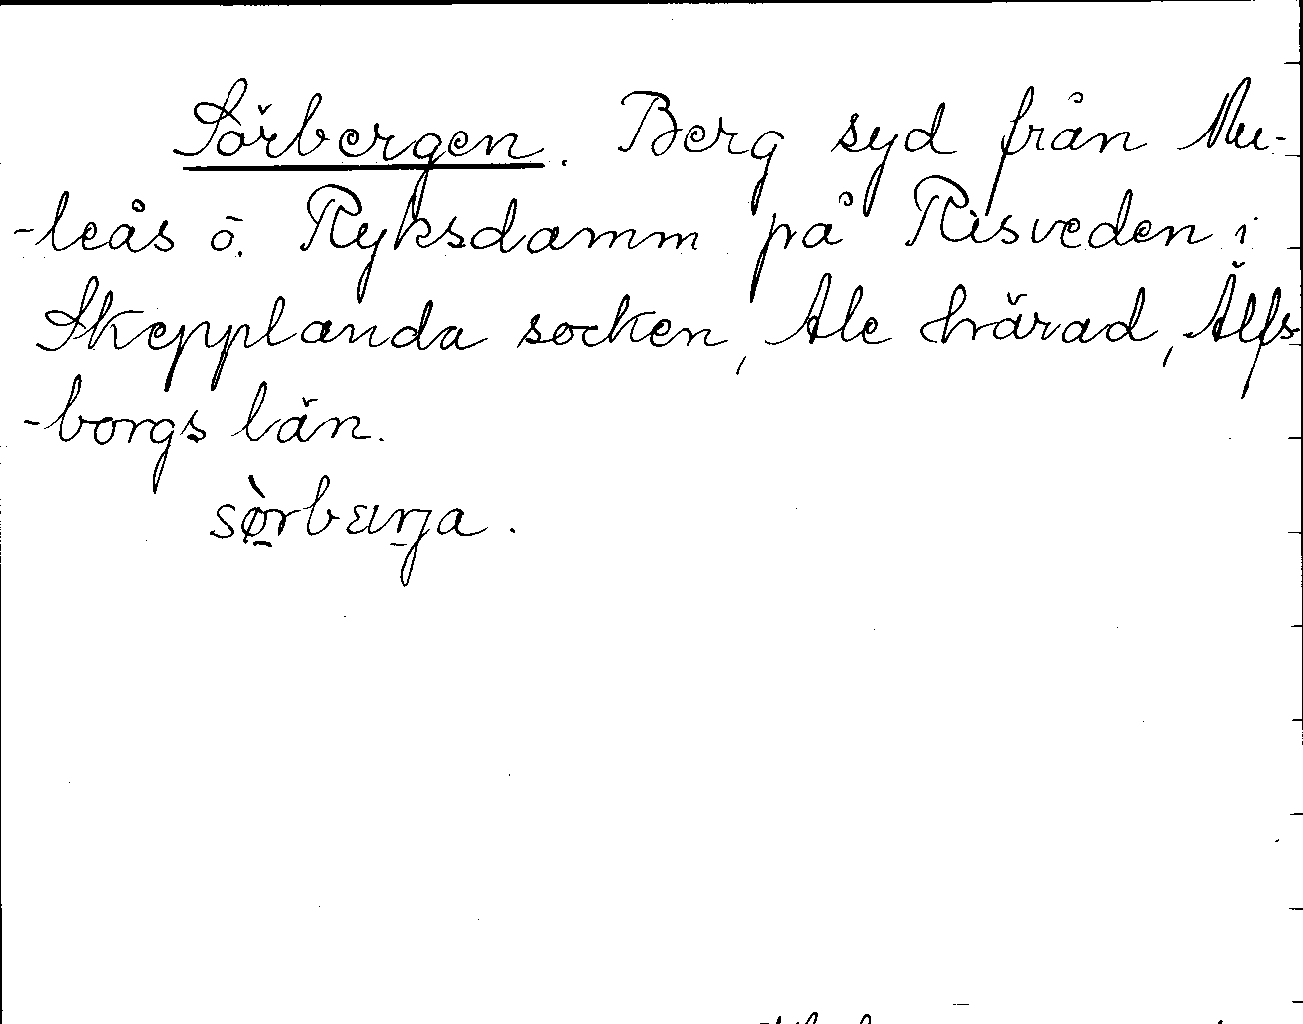 Sörbergen. Berg syd från Mu-
-leås ö. Ryksdamm på Risveden i
Skepplanda socken, Ale härad, Älfs-
-borgs län.